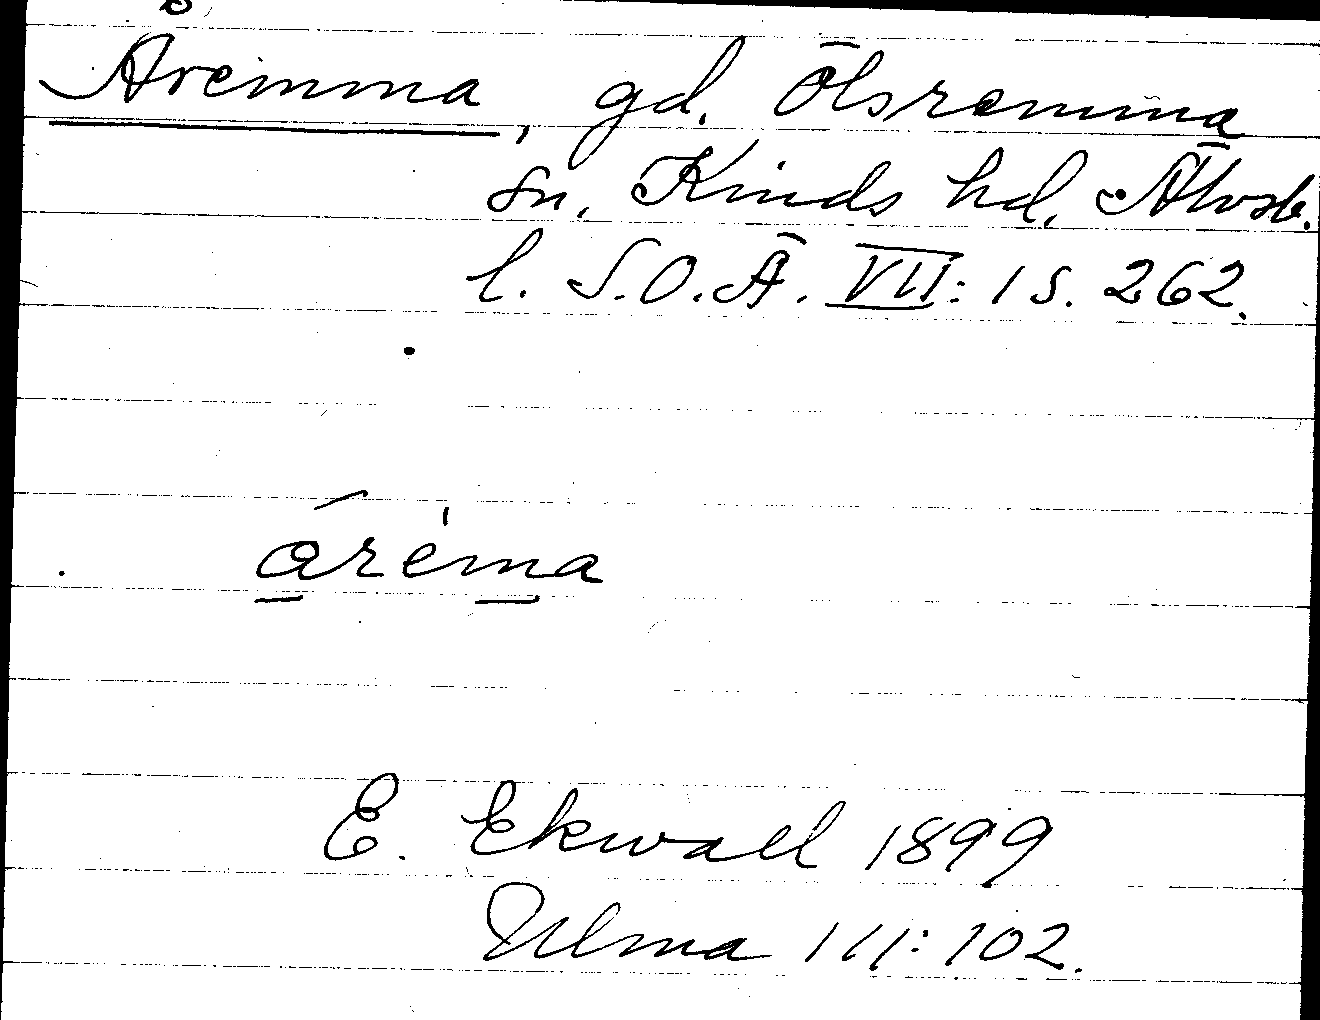 Åremma, gd. Ölsremma
sn. Kinds hd. Älvsb.
l. S.O.Ä. VII: 1 s. 262.
åre̍ma
E. Ekwall 1899
Ulma 111:102.